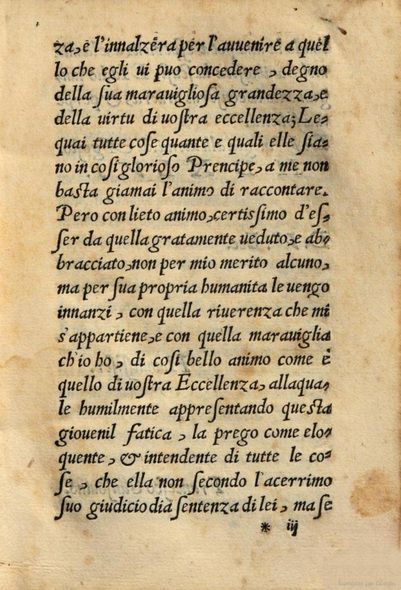 za, e l'innalzerà per l'auuenire a quel
lo che egli ui puo concedere, degno
della sua marauigliosa grandezza, e
della uirtu di uostra eccellenza; Le-
quai tutte cose quante e quali elle sia-
no in cosi glorioso Prencipe, a me non
basta giamai l'animo di raccontare.
Pero con lieto animo, certissimo d'es-
ser da quella gratamente ueduto, e ab-
bracciato, non per mio merito alcuno,
ma per sua propria humanita le uengo
innanzi, con quella riuerenza che mi
s'appartiene, e con quella marauiglia
ch'io ho, di cosi bello animo come è
quello di uostra Eccellenza, allaqua-
le humilmente appresentando questa
giouenil fatica, la prego come elo-
quente, & intendente di tutte le co-
se, che ella non secondo l'acerrimo
suo giudicio dia sentenza di lei, ma se
* iij